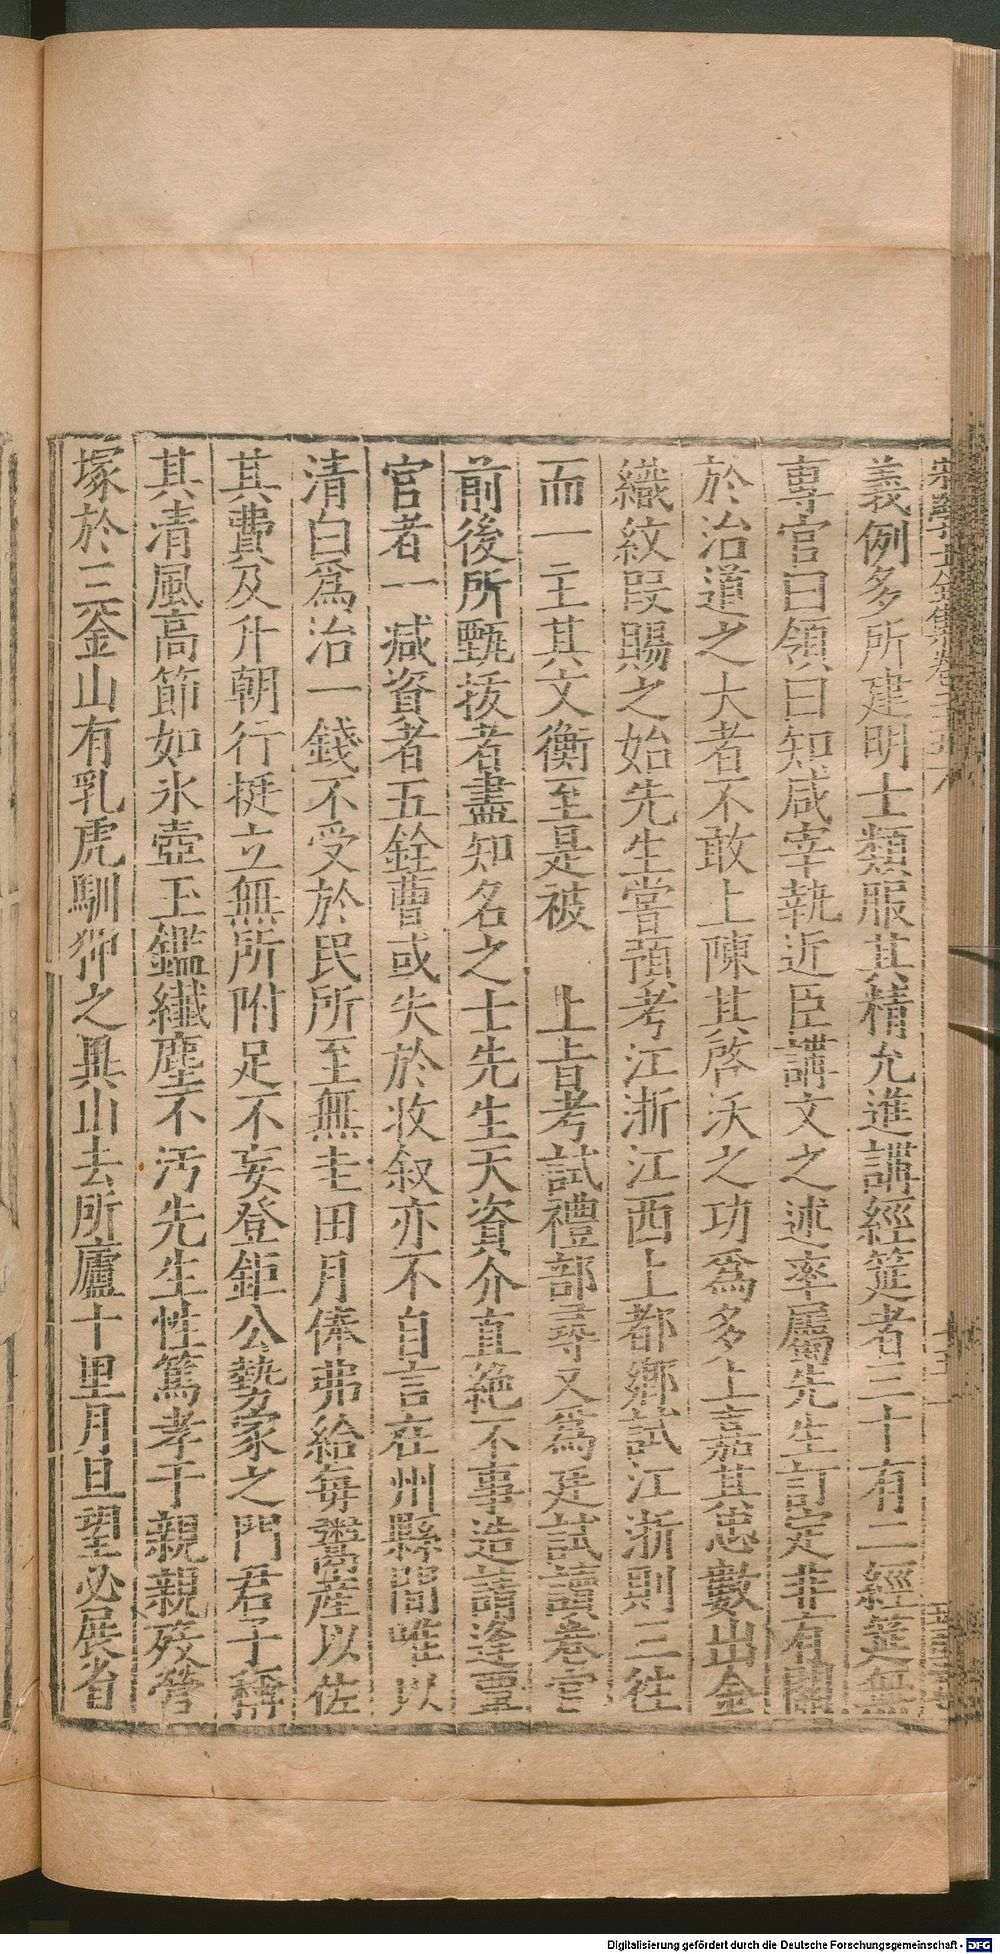 義例多所建明士類服其精允進講經筵者三十有二經筵無
專官曰領曰知咸宰執近臣講文之述率屬先生訂定非有關
於治道之大者不敢上陳其啓沃之功爲多上嘉其忠數出金
織紋段賜之始先生嘗預考江浙江西上都鄉試江浙則三往
而一主其文衡至是被 上旨考試禮部尋又爲廷試讀卷官
前後所甄拔者盡知名之士先生天資介直絶不事造請逢
官者一減資者五銓曹或失於收叙亦不自言在州縣間唯以
清白爲治一錢不受於民所至無圭田月俸弗給每鬻產以佐
其費及升朝行挺立無所附足不妄登鉅公勢家之門君子稱
其清風高節如氷壺玉鑑纖塵不汚先生性篤孝于親親歿營
塚於三釜山有乳虎馴狎之異山去所廬十里月旦望必展省
Digitalisierung gefördert durch die Deutsche Forschungsgemeinschaft - DFG